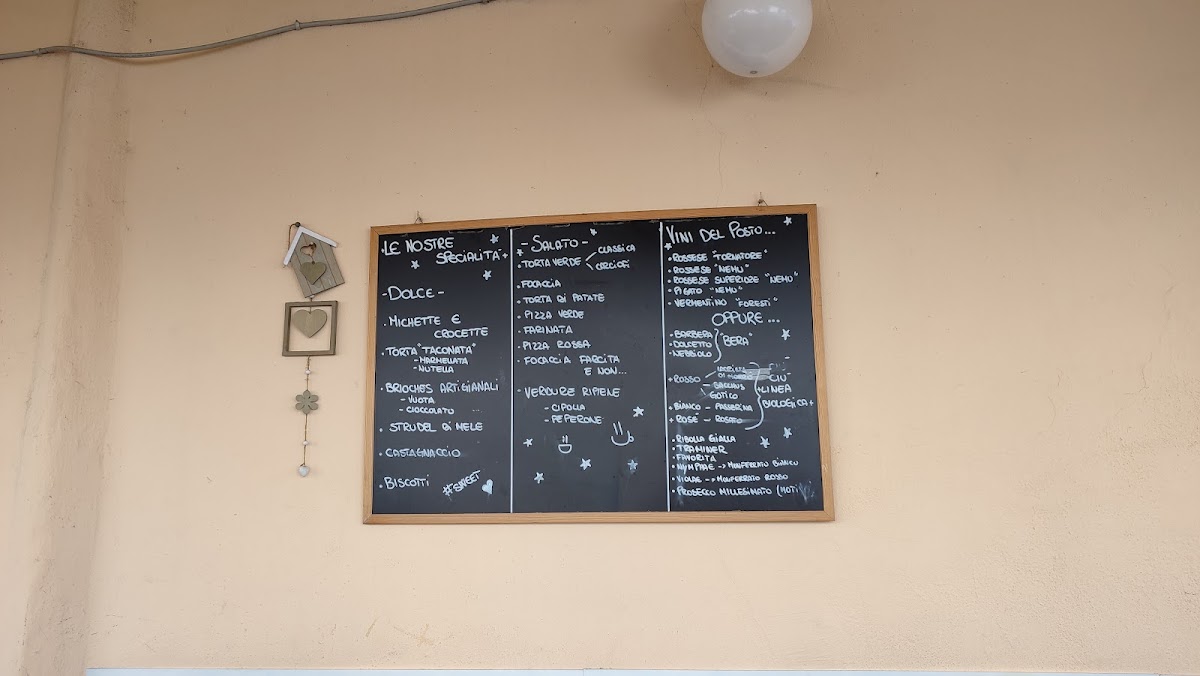 LE NOSTRE
SPECIALITA'
- DOLCE -
• MICHETTE E
CROCETTE
• TORTA "TACONATA"
- MARMELLATA
- NUTELLA
• BRIOCHES ARTIGIANALI
- VUOTA
- CIOCCOLATO
• STRUDEL DI MELE
• CASTAGNACCIO
• BISCOTTI
#SWEET
- SALATO -
• TORTA VERDE
CLASSICA
CARCIOFI
• FOCACCIA
• TORTA DI PATATE
• PIZZA VERDE
• FARINATA
• PIZZA ROSSA
• FOCACCIA FARCITA
E NON...
- VERDURE RIPIENE
- CIPOLLA
- PEPERONE
VINI DEL POSTO...
• ROSSESE "TORNATORE"
• ROSSESE "NEMU"
• ROSSESE SUPERIORE "NEMU"
• PIGATO "NEMU"
• VERMENTINO "FORESTI"
OPPURE...
• BARBERA
• DOLCETTO
• NEBBIOLO
"BERA"
+ ROSSO
- BACCHUS
GOTICO
+ BIANCO - PASSERINA
+ ROSE' - ROSATO
CIU'
+ LINEA
BIOLOGICA +
• RIBOLLA GIALLA
• TRAMINER
• FAVORITA
• NYMPHAE -> MONFERRATO BIANCO
• VIOLAE -> MONFERRATO ROSSO
• PROSECCO MILLESIMATO